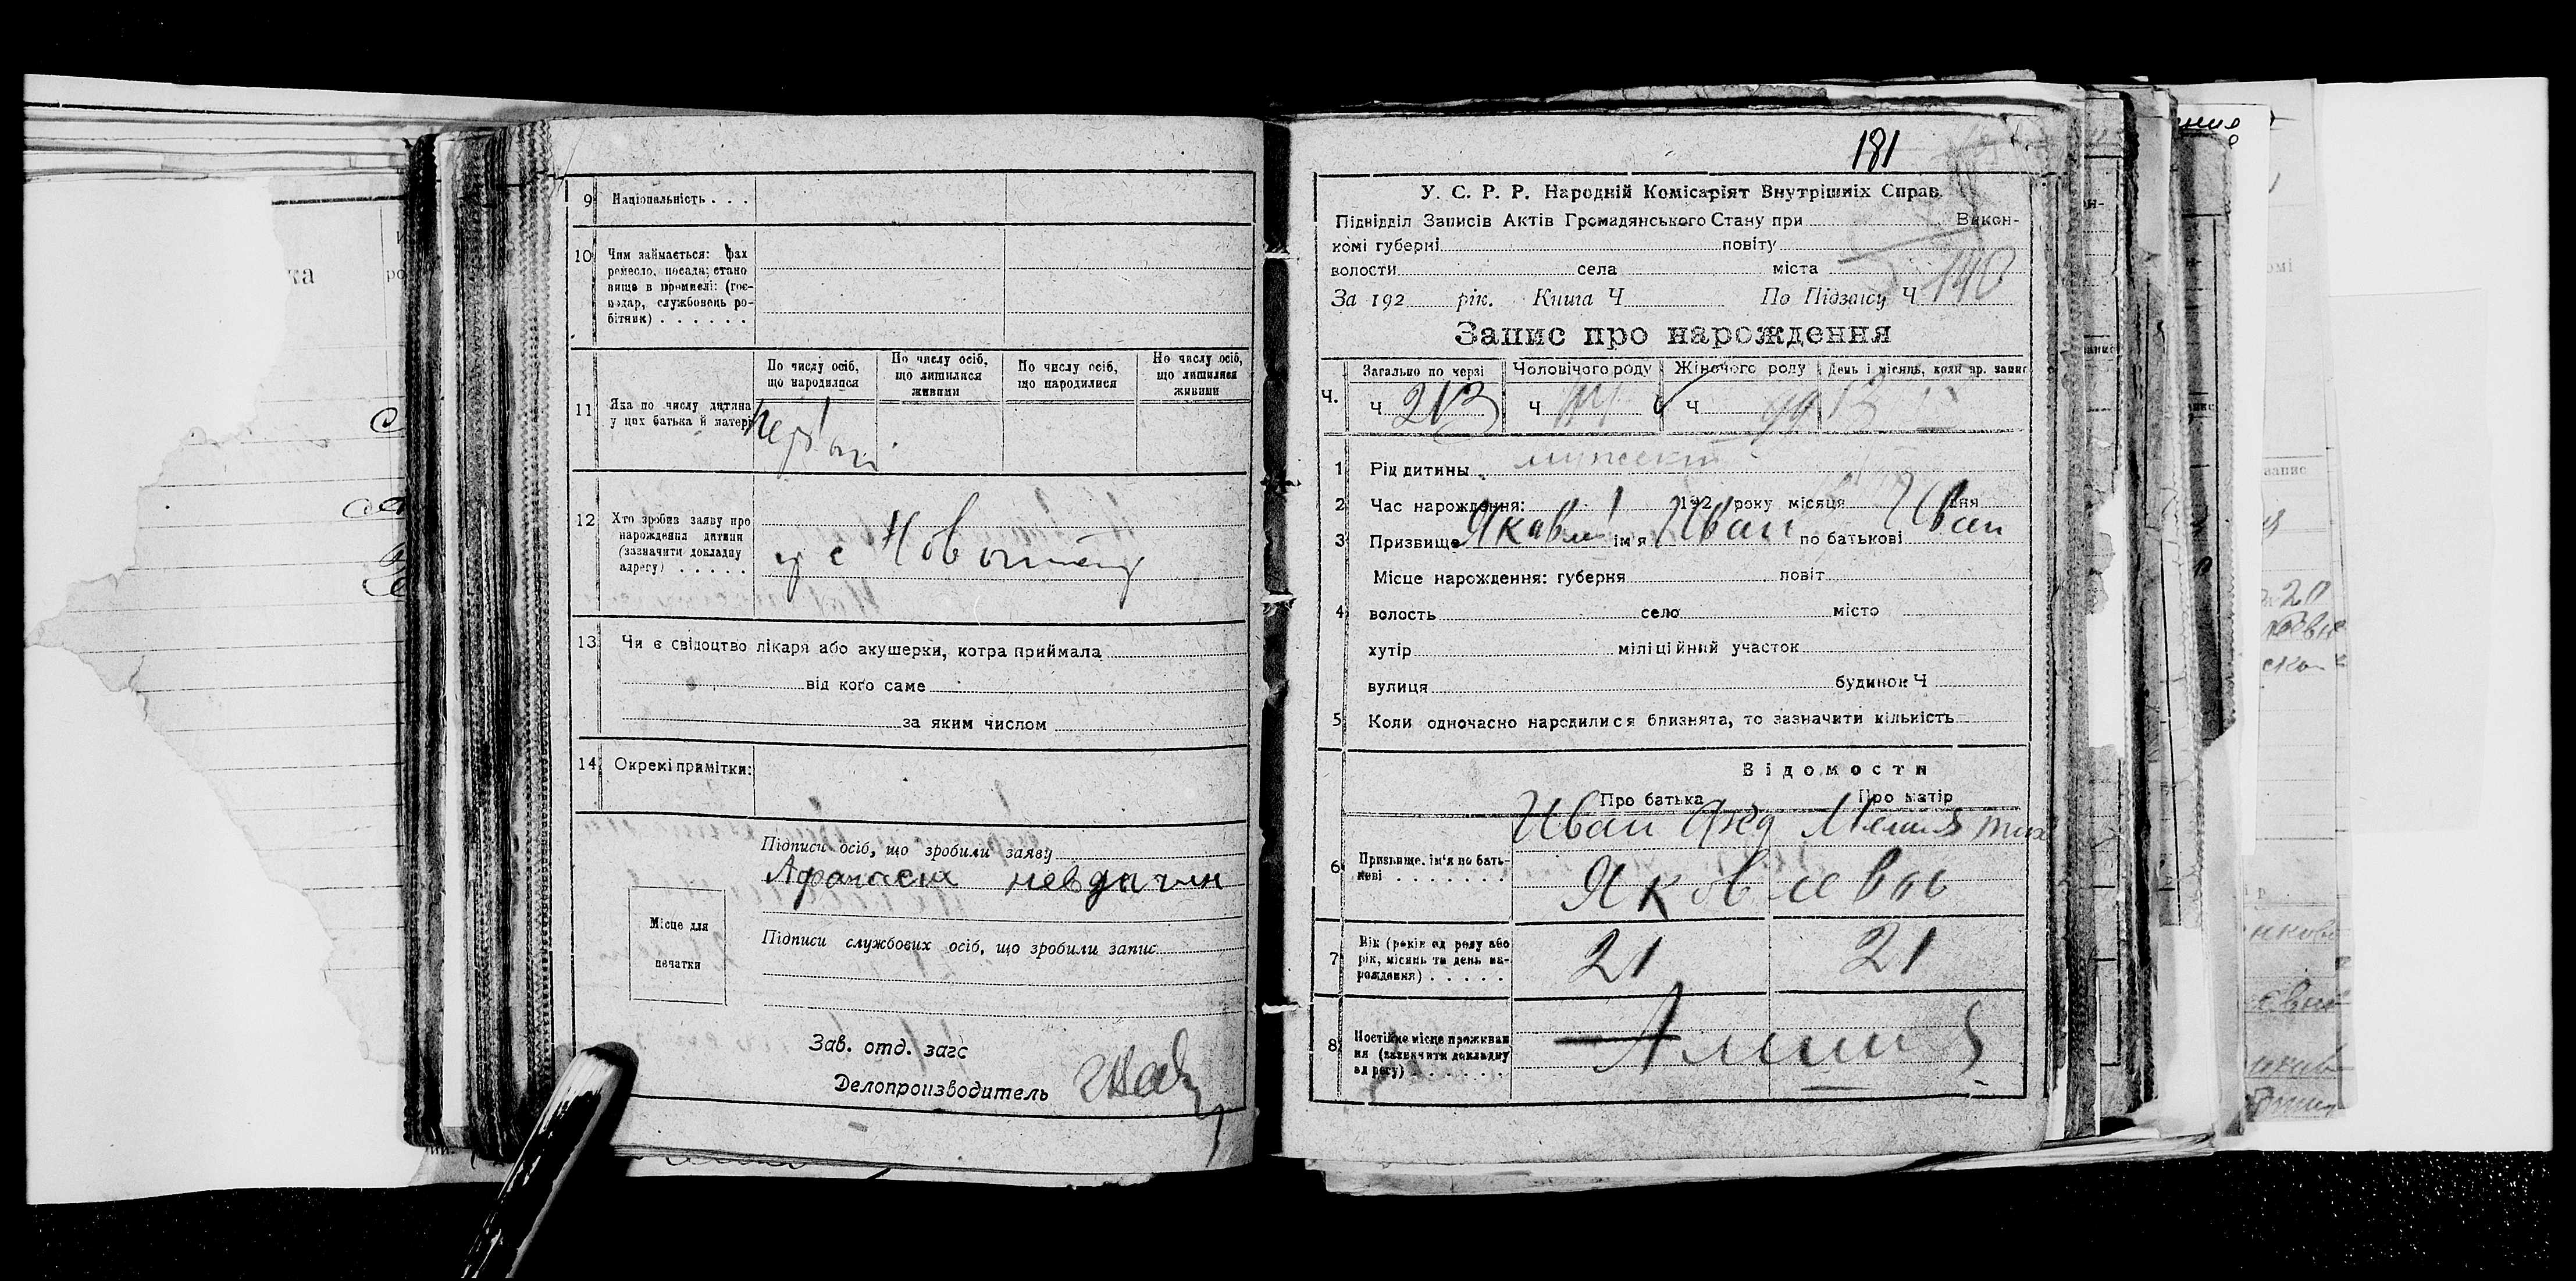 9 Національність . . .
10 Чим займається: фах
ремесло, посада; стано
вище в промислі: (гос-
подар, службовець ро-
бітник) . . . . . .
По числу осіб,
що народилися
По числу осіб,
що лишилися
живими
По числу осіб,
що народилися
По числу осіб,
що лишилися
живими
11 Яка по числу дитина
у цих батька й матері
12 Хто зробив заяву про
нарождення дитини
(зазначити докладну
адресу) . . . . .
13 Чи є свідоцтво лікаря або акушерки, котра приймала
від кого саме
за яким числом
14 Окремі примітки:
Підписи осіб, що зробили заяву
Афанасий невдачин
Місце для
печатки
Підписи службових осіб, що зробили запис
Зав. отд. загс
Делопроизводитель
181
У. С. Р. Р. Народній Комісаріят Внутрішніх Справ.
Підвідділ Записів Актів Громадянського Стану при Викон-
комі губерні повіту
волости села міста
За 192 рік. Книга Ч По Підзапису Ч 140
Запис про нарождення
Ч. Загально по черзі Чоловічого роду Жіночого роду День і місяць, коли зр. запис
Ч 213 Ч Ч 99 13
1 Рід дитины мужский
2 Час нарождення: 192 року місяця дня
3 Призвище Якавл ім'я Иван по батькові Иван
Місце нарождення: губерня повіт
4 волость село місто
хутір міліційний участок
вулиця будинок Ч
5 Коли одночасно народилися близнята, то зазначити кількість
Відомости
Про батька Про матір
Иван Фёд
6 Призвище, ім'я по бать-
кові . . . . . . .
Яковлевы
7 Вік (років од роду або
рік, місяць та день на-
рождення) . . . . .
21 21
8 Постійне місце прожкван
ня (зазначити докладну
адресу) . . . . . .